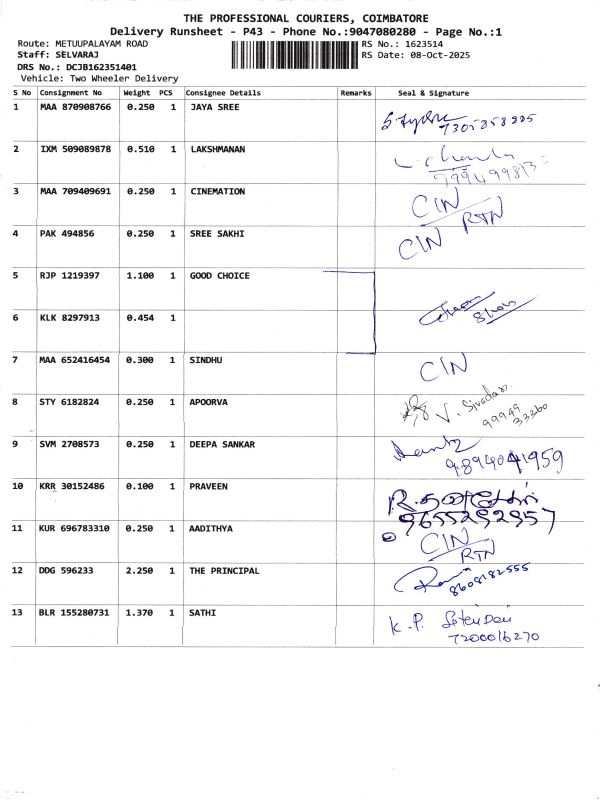 THE PROFESSIONAL COURIERS, COIMBATORE
Delivery Runsheet - P43 - Phone No.:9047080280 - Page No.:1
Route: METUUPALAYAM ROAD RS No.: 1623514
Staff: SELVARAJ RS Date: 08-Oct-2025
DRS No.: DCJB162351401
Vehicle: Two Wheeler Delivery
S No Consignment No Weight PCS Consignee Details Remarks Seal & Signature
1 MAA 870908766 0.250 1 JAYA SREE
7305858885
2 IXM 509089878 0.510 1 LAKSHMANAN
3 MAA 709409691 0.250 1 CINEMATION CIN
RTN
4 PAK 494856 0.250 1 SREE SAKHI CIN
5 RJP 1219397 1.100 1 GOOD CHOICE
6 KLK 8297913 0.454 1
7 MAA 652416454 0.300 1 SINDHU CIN
8 STY 6182824 0.250 1 APOORVA V. Sivadas
99949
33260
9 SVM 2708573 0.250 1 DEEPA SANKAR
9894041959
10 KRR 30152486 0.100 1 PRAVEEN
9655292957
11 KUR 696783310 0.250 1 AADITHYA CIN
RTN
12 DDG 596233 2.250 1 THE PRINCIPAL
8608182555
13 BLR 155280731 1.370 1 SATHI K. P.
7200016270